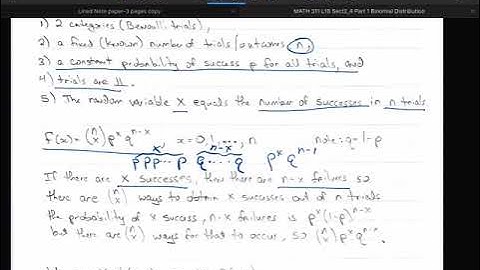 Lined Note paper-3 pages copy
MATH 311 L15 Sect3_4 Part 1 Binomial Distribution
1) 2 categories (Bernoulli trials),
2) a fixed (known) number of trials/outcomes n,
3) a constant probability of success p for all trials, and
4) trials are ⫫.
5) The random variable X equals the number of successes in n trials
f(x) = (n x) p^x q^{n-x}, x=0,1,..., n note: q=1-p
x n-x
p p p ... p q ..... q p^x q^{n-x}
If there are x successes, then there are n-x failures so
there are (n x) ways to obtain x successes out of n trials
the probability of x success, n-x failures is p^x (1-p)^{n-x}
but there are (n x) ways for that to occur, so (n x) p^x q^{n-x}.